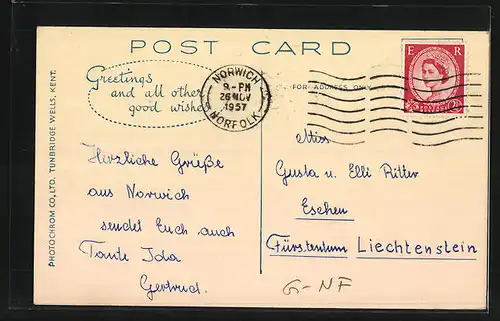 POST CARD
Greetings
and all other
good wishes
NORWICH
9 - PM
26 NOV
1957
NORFOLK
E R
FOR ADDRESS ONLY
PHOTOCHROM CO., LTD. TUNBRIDGE WELLS, KENT.
Herzliche Grüße
aus Norwich
sendet Euch auch
Tante Ida
Gertrud.
Miss
Gusta u. Elli Ritter
Eschen
Fürstentum Liechtenstein
G-NF